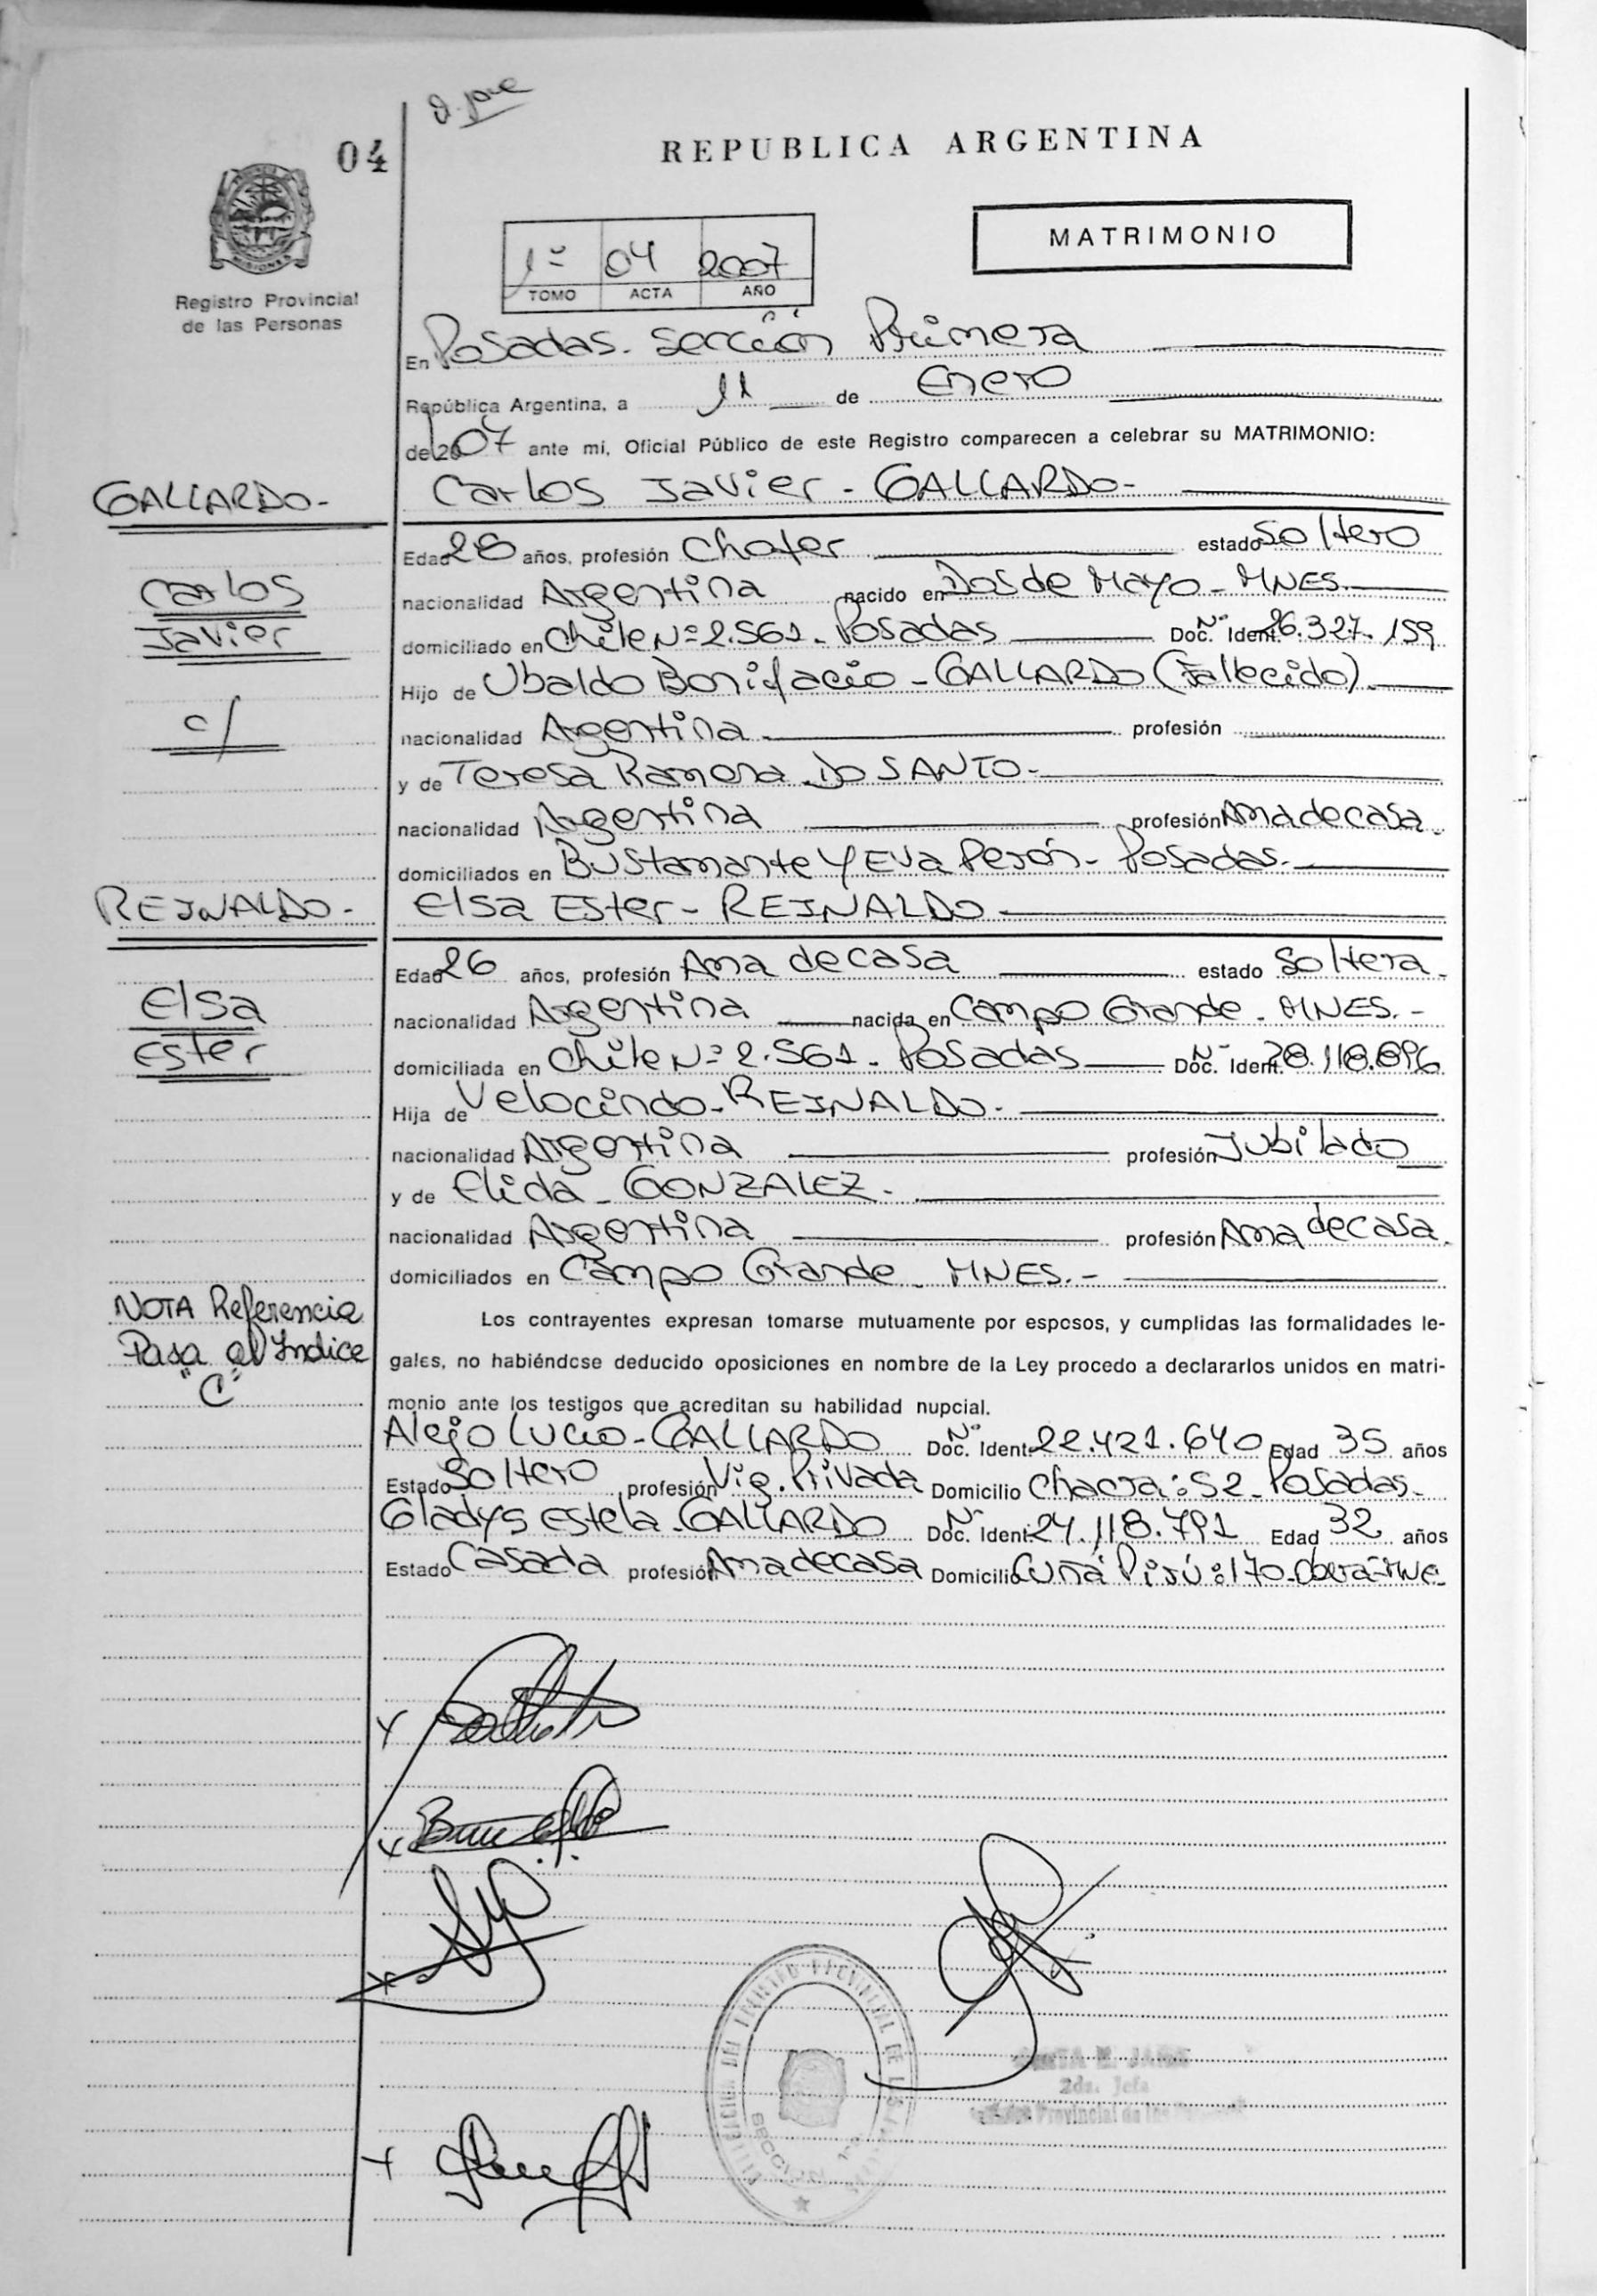 04
REPUBLICA ARGENTINA
MISIONES
Registro Provincial
de las Personas
MATRIMONIO
1º 04 2007
TOMO ACTA AÑO
En Posadas. Sección Primera
República Argentina, a 11 de Enero
del 2007 ante mi, Oficial Público de este Registro comparecen a celebrar su MATRIMONIO:
GALLARDO-
Carlos Javier - GALLARDO-
Edad 28 años, profesión Chofer estado Soltero
Carlos
Javier
nacionalidad Argentina nacido en Dos de Mayo - MNES.
domiciliado en Chile Nº 2.561. Posadas Doc. Ident. Nº 26.327.159
Hijo de Ubaldo Bonifacio - GALLARDO (Fallecido).
c/
nacionalidad Argentina profesión
y de Teresa Ramona DO SANTO-
nacionalidad Argentina profesión Ama de casa.
domiciliados en Bustamante y Eva Perón - Posadas.
REINALDO-
Elsa Ester - REINALDO
Edad 26 años, profesión Ama de casa estado Soltera.
Elsa
Ester
nacionalidad Argentina nacida en Campo Grande - MNES.-
domiciliada en Chile Nº 2.561. Posadas Doc. Ident. Nº 28.118.896
Hija de Velocindo - REINALDO.
nacionalidad Argentina profesión Jubilado
y de Elida - GONZALEZ.
nacionalidad Argentina profesión Ama de casa.
domiciliados en Campo Grande - MNES.-
NOTA Referencia
Pasa al Indice
"C"
Los contrayentes expresan tomarse mutuamente por esposos, y cumplidas las formalidades le-
gales, no habiéndose deducido oposiciones en nombre de la Ley procedo a declararlos unidos en matri-
monio ante los testigos que acreditan su habilidad nupcial.
Alejo Lucio - GALLARDO Doc. Ident. Nº 22.421.640 Edad 35 años
Estado Soltero profesión Vig. Privada Domicilio Chacra: 52 - Posadas.
Gladys Estela - GALLARDO Doc. Ident. Nº 24.118.791 Edad 32 años
Estado Casada profesión Ama de casa Domicilio Cuña Pirú: 170-Oberá-Mne.
2da. Jefa
Provincial de las